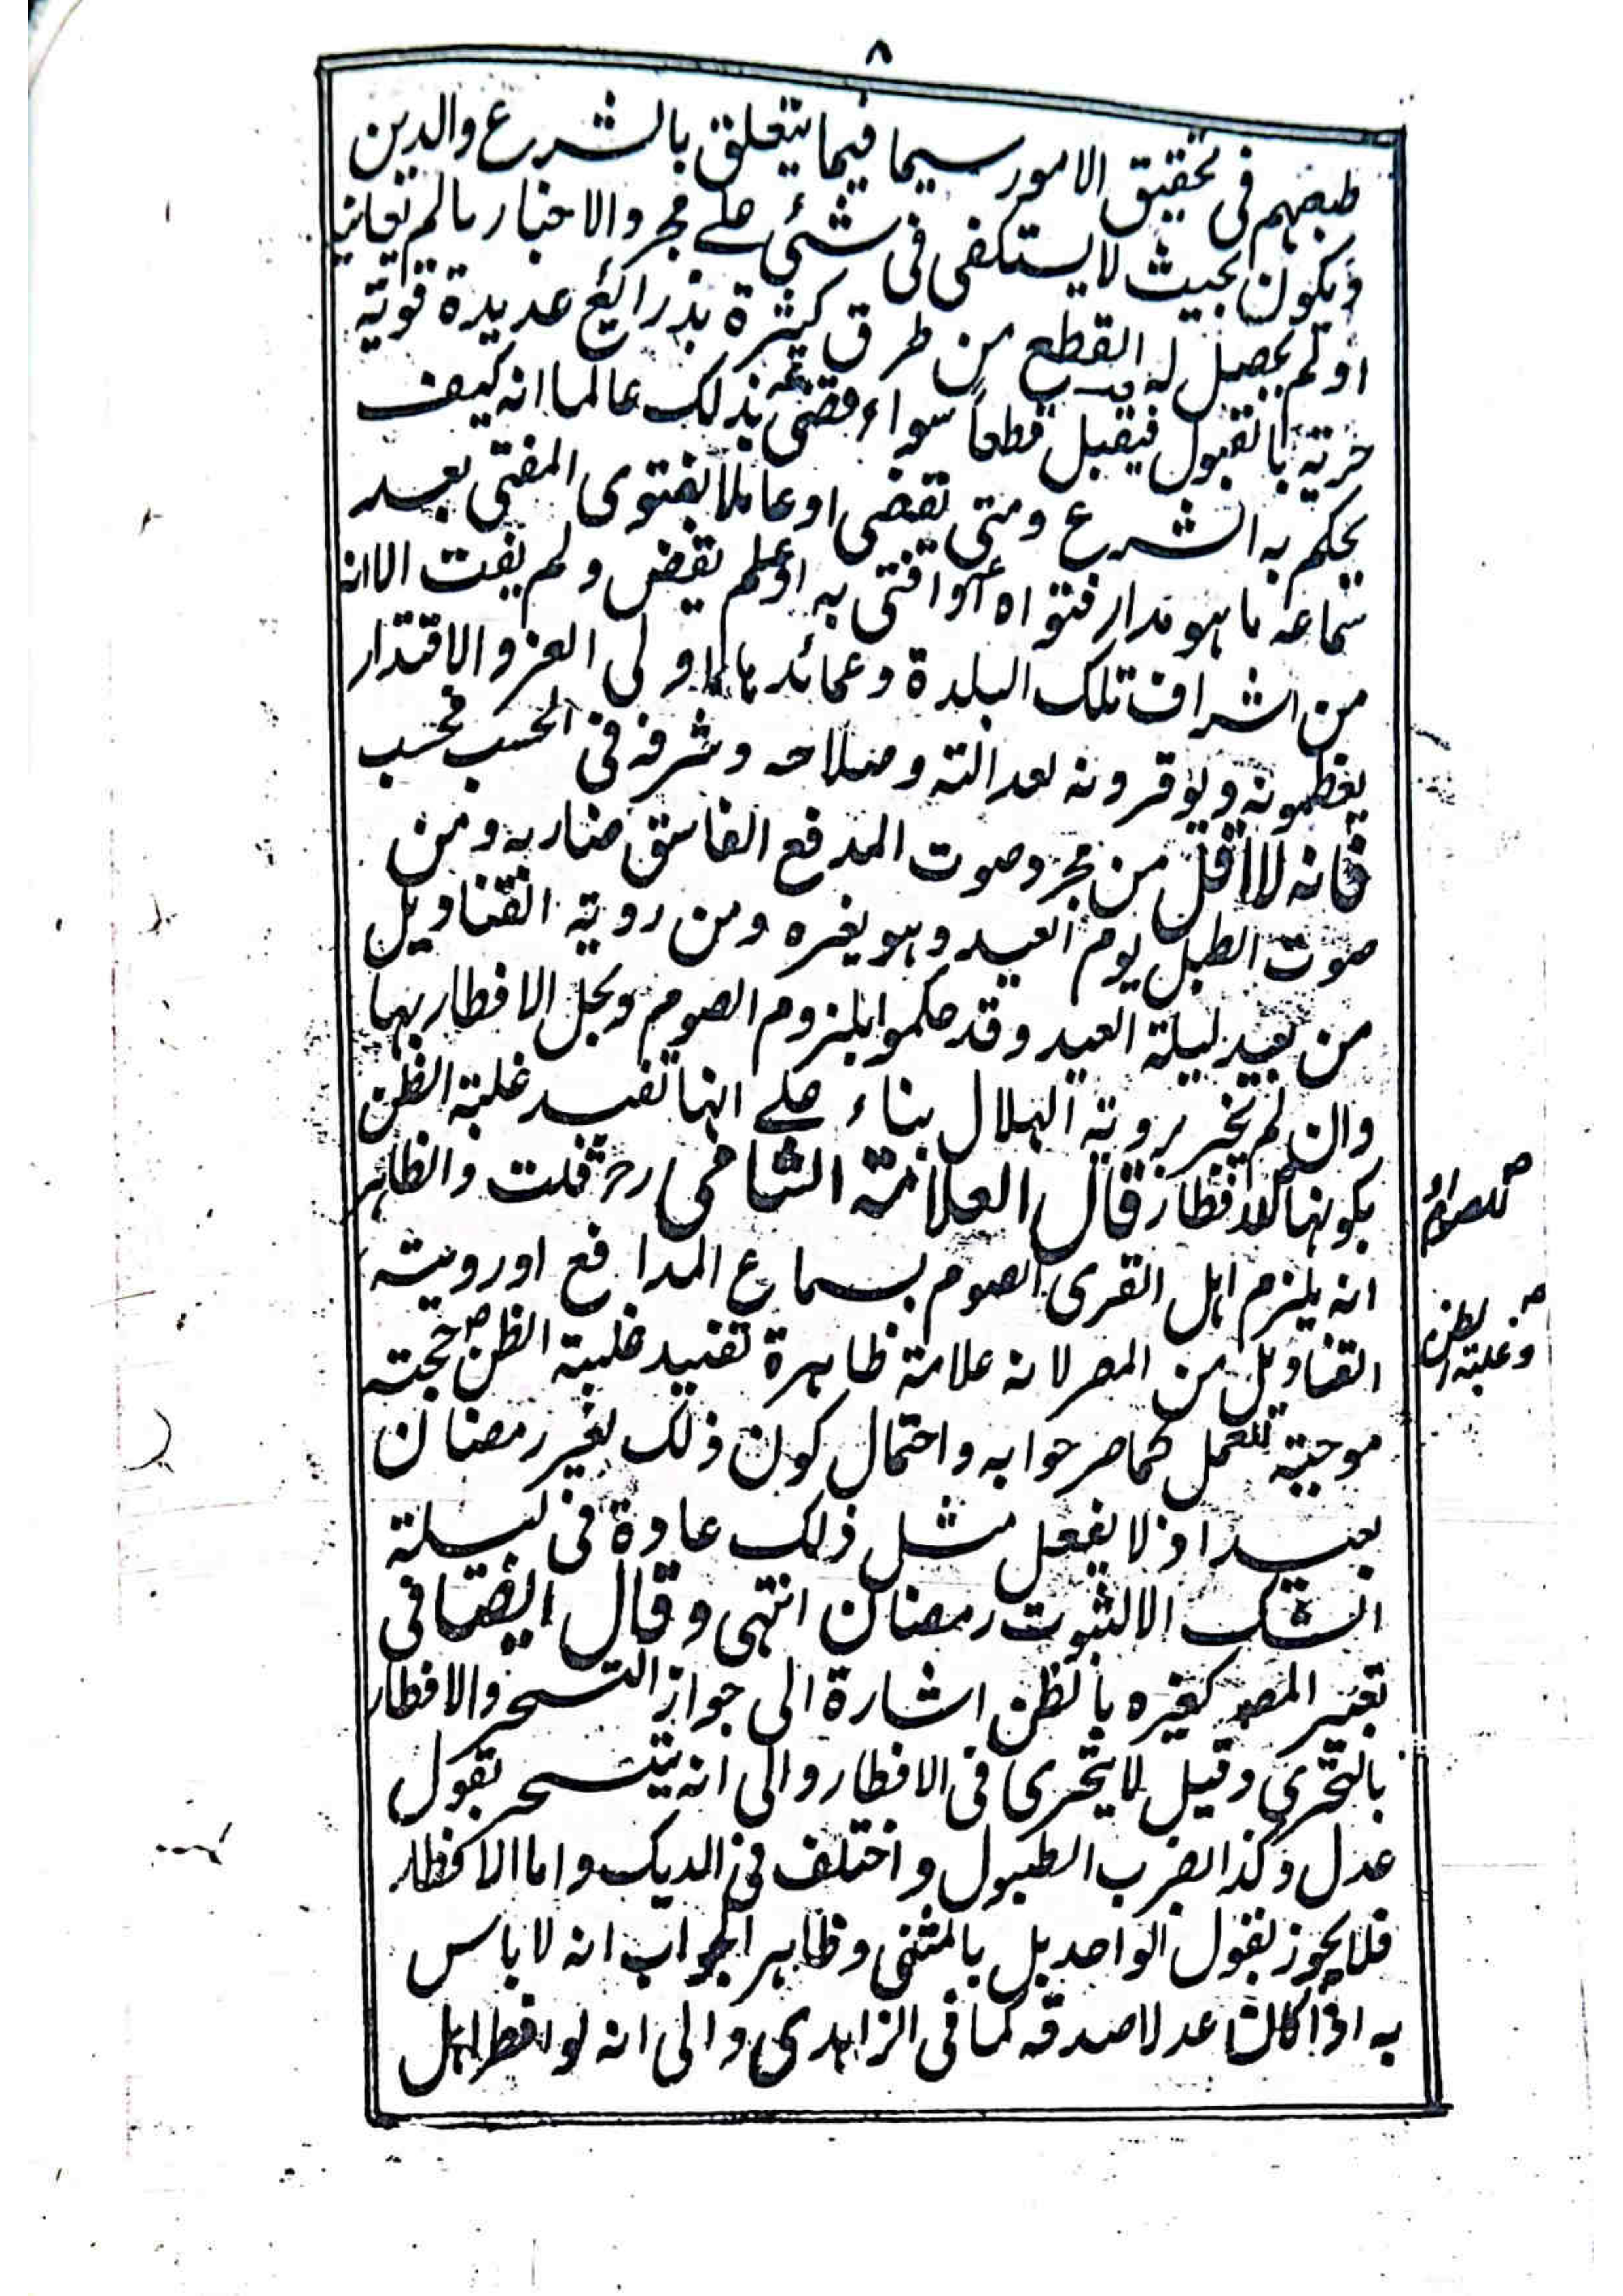 ٨
طبعهم فى تحقيق الامور سيما فيما يتعلق بالشرع والدين
ويكون بحيث لا يستكفى فى شئ على مجرد الاخبار مالم يعاينه
او لم يحصل له القطع من طرق كثيرة بذرائع عديدة قوية
حرية بالقبول فيقبل قطعاً سواء قضى بذلك عالما انه كيف
يحكم به الشرع ومتى يقضى او عاملا بفتوى المفتى بعد
سماعه ما هو مدار فتواه او افتى به او لم يقض ولم يفت الا انه
من اشراف تلك البلدة وعمائدها اولى العز والاقتدار
يعظمونه ويوقرونه لعدالته وصلاحه وشرفه فى الحسب فحسب
فانه لا اقل من مجرد صوت المدفع الفاسق ضاربه ومن
صوت الطبل يوم العيد وهو يغره ومن روية القناديل
من بعيد ليلة العيد وقد حكموا بلزوم الصوم وبحل الافطار بها
وان لم تخبر بروية الهلال بناء على انها تفيد غلبة الظن
بكونها للافطار قال العلامة الشامى رح قلت والظاهر
انه يلزم اهل القرى الصوم بسماع المدافع او روية
القناديل من المصر لانه علامة ظاهرة تفيد غلبة الظن حجة
موجبة للعمل كما صرحوا به واحتمال كون ذلك لغير رمضان
بعيد اذ لا يفعل مثل ذلك عادة فى ليلة
الشك الا لثبوت رمضان انتهى وقال ايضا فى
تعبير المصـ كغيره بالظن اشارة الى جواز التسحر والافطار
بالتحرى وقيل لا يتحرى فى الافطار والى انه يتسحر بقول
عدل وكذا بضرب الطبول واختلف فى الديك واما الافطار
فلا يجوز بقول الواحد بل بالمثنى وظاهر الجواب انه لا باس
به اذا كان عدلا صدقه كما فى الزاهدى والى انه لو افطر اهل
للصوم او
وغلبة الظن